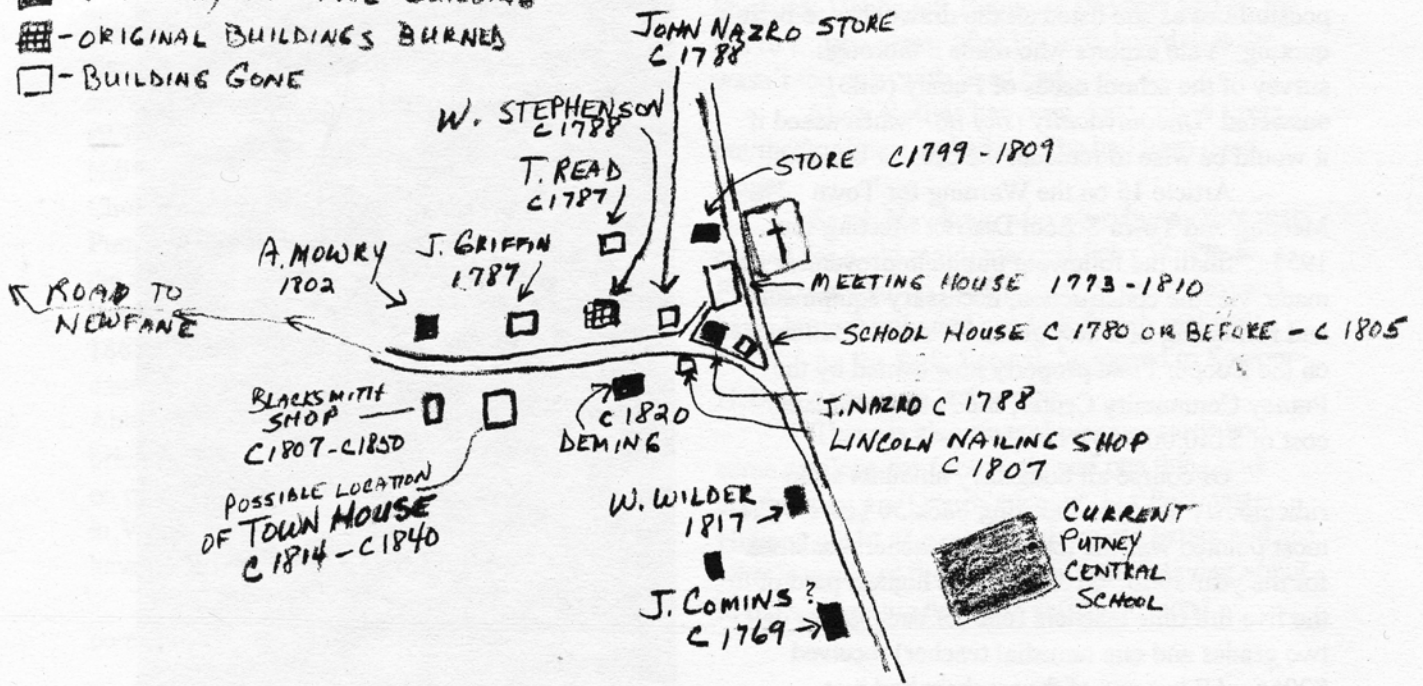 - ORIGINAL BUILDINGS BURNED
- BUILDING GONE
JOHN NAZRO STORE
C 1788
W. STEPHENSON
C 1788
T. READ
C 1787
STORE C1799-1809
A. MOWRY
1802
J. GRIFFIN
1787
ROAD TO
NEWFANE
MEETING HOUSE 1773-1810
SCHOOL HOUSE C 1780 OR BEFORE - C 1805
BLACKSMITH
SHOP
C1807-C1850
C 1820
DEMING
J. NAZRO C 1788
LINCOLN NAILING SHOP
C 1807
POSSIBLE LOCATION
OF TOWN HOUSE
C 1814-C1840
W. WILDER
1817
CURRENT
PUTNEY
CENTRAL
SCHOOL
J. COMINS?
C 1769